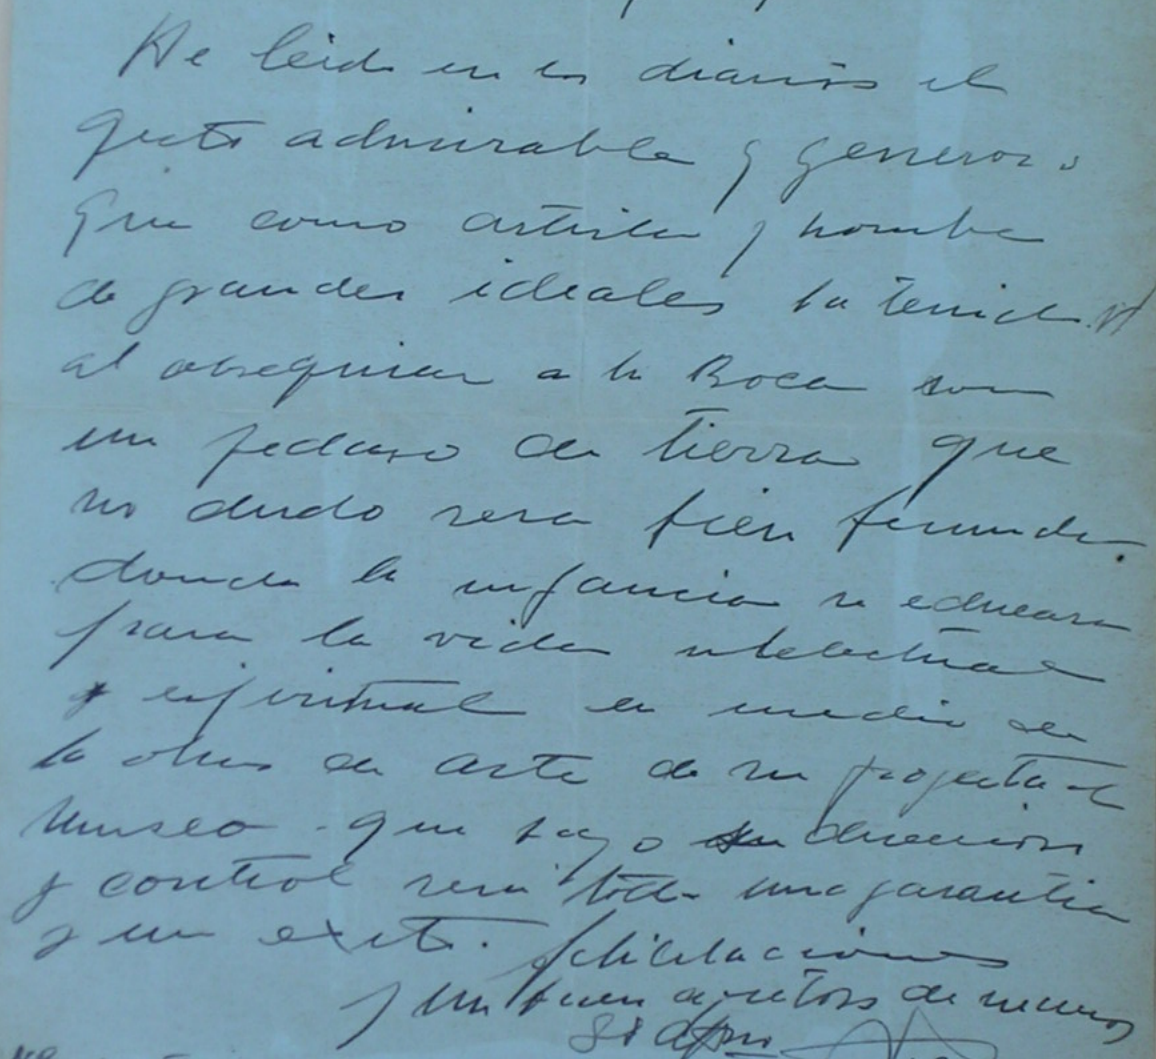 He leido en los diarios el
gesto admirable y generoso
que como artista y hombre
de grandes ideales ha tenido Vd
al obsequiar a la Boca con
un pedaso de tierra que
no dudo sera bien fecunda.
donde la infancia se educara
para la vida intelectual
y espiritual en medio de
la obra de arte de su proyectad
Museo - que bajo su direccion
y control sera toda una garantia
y un exito. felicitaciones
y un buen apreton de manos